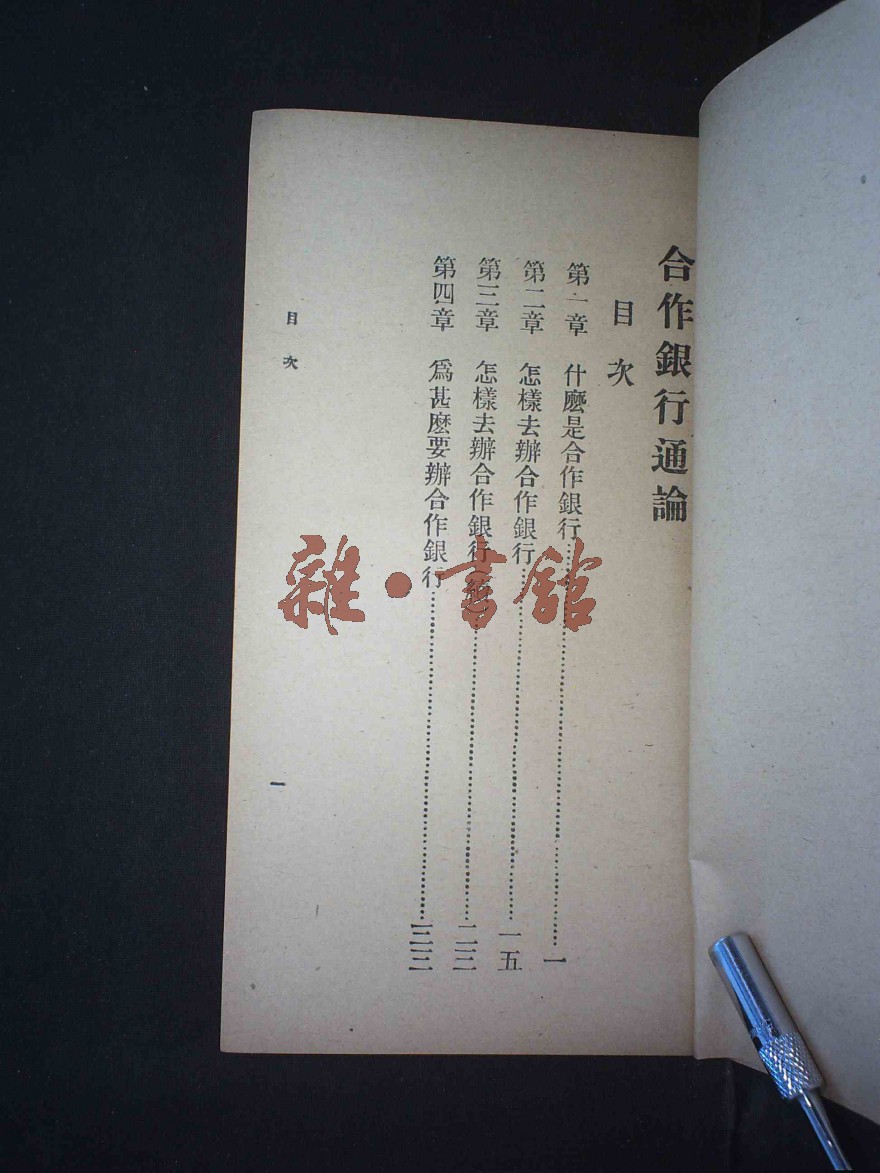 合作銀行通論
目次
第一章 什麼是合作銀行……………………一
第二章 怎樣去辦合作銀行……………………一五
第三章 怎樣去辦合作銀行……………………二三
第四章 爲甚麽要辦合作銀行……………………三三
目次
一
雜·書館